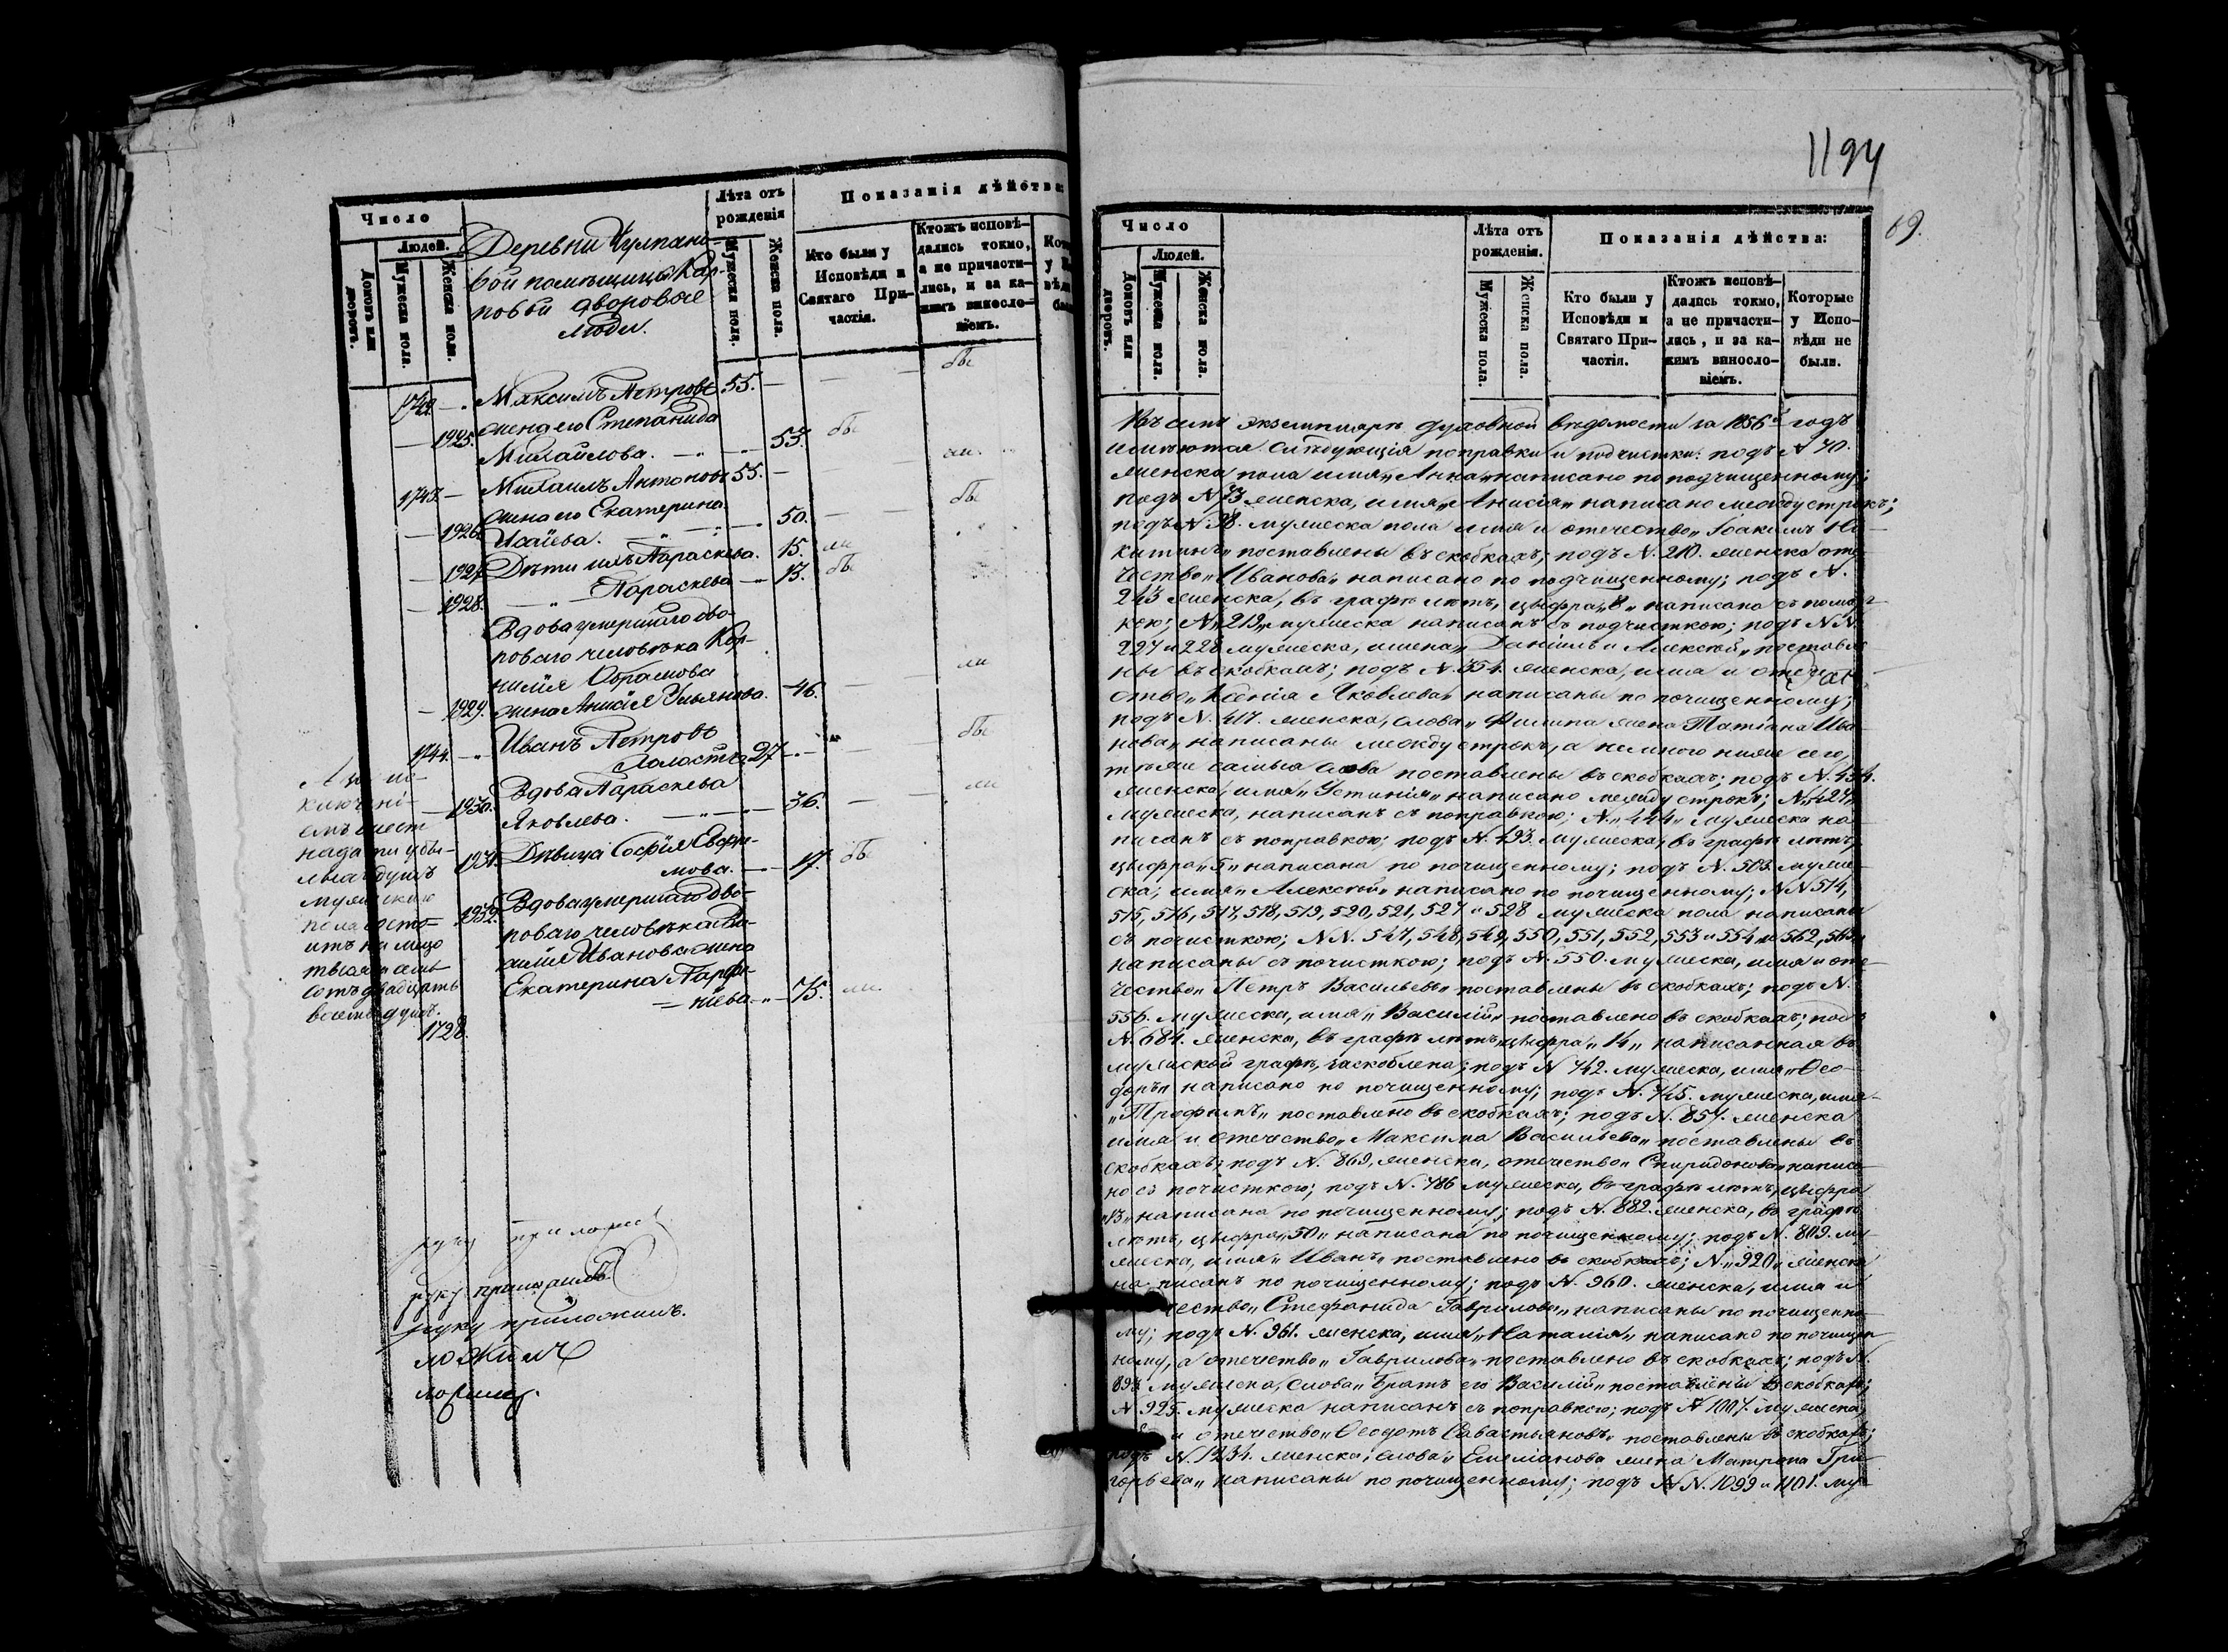 Число
Людей.
Домовъ или дворовъ.
Мужеска пола.
Женска пола.
Деревни Чулпано-
вой помѣщицы Кар-
повой дворовые
люди.
Лѣта отъ
рожденія
Мужеска пола.
Женска пола.
Показанія дѣйства:
Кто были у
Исповѣди и
Святаго При-
частія.
Ктожъ исповѣ-
дались токмо,
а не причасти-
лись, и за ка-
кимъ винносло-
віемъ.
1742. — Максимъ Петровъ 55. —
жена его Степанида
— 1925. Михайлова. — 53.
1743. — Михаилъ Антоновъ 55. —
жена его Екатерина
— 1926. Исаіева. — 50.
— 1927. Дѣти ихъ Параскева. 15.
— 1928. Параскева — 13.
Вдова умершаго дво-
роваго человѣка Кор-
нилія Абрамова
— 1929. жена Анисія Ульянова. 46.
1744. — Иванъ Петровъ
Холостъ 27 —
Вдова Параскева
— 1930. Яковлева. — 36.
1931. Дѣвица Софія Ефре-
мова. — 17.
1932. Вдова умершаго дво-
роваго человѣка Ва-
силія Иванова жена
Екатерина Парфе-
ніева — 75.
А за ис-
ключені-
емъ шест-
надцати убы-
лыхъ душъ
мужескаго
пола состо-
итъ на лицо
тысяча семь-
сотъ двадцать
восемь душъ.
1728.
руку приложилъ
руку приложилъ.
ложилъ
ложилъ.
1194
69.
Число
Людей.
Домовъ или дворовъ.
Мужеска пола.
Женска пола.
Лѣта отъ
рожденія.
Мужеска пола.
Женска пола.
Показанія дѣйства:
Кто были у
Исповѣди и
Святаго При-
частія.
Ктожъ исповѣ-
дались токмо,
а не причасти-
лись, и за ка-
кимъ винносло-
віемъ.
Которые
у Испо-
вѣди не
были.
Въ семъ экземплярѣ духовной вѣдомости за 1856й годъ
имѣются слѣдующія поправки и подчистки: подъ N 70.
женска пола имя „Анна„ написано по подчищенному;
подъ N 73 женска, имя „Анисія„ написано между строкъ;
подъ N 98. мужеска пола имя и отечество „Іоакимъ Ни-
китинъ„ поставлены въ скобкахъ; подъ N. 210. женска оте-
чество „Иванова„ написано по подчищенному; подъ N.
243 женска, въ графѣ лѣтъ, цыфра „8„ написана съ помар-
кою; N „219„ мужеска написанъ съ подчисткою; подъ NN.
227 и 228 мужеска, имена „Даніилъ и Алексѣй„ поставле-
ны въ скобкахъ; подъ N. 354. женска, имя и отече-
ство „Ксенія Яковлева„ написаны по почищенному;
подъ N. 417. женска, слова „Филипа жена Татіана Ива-
нова„ написаны между строкъ, а немного ниже сего,
тѣже самыя слова поставлены въ скобкахъ; подъ N. 434.
женска, имя „Устинія„ написано между строкъ; N „424„
мужеска, написанъ съ поправкою; N. „444„ мужеска на-
писанъ съ поправкою; подъ N. 493. мужеска, въ графѣ лѣтъ,
цыфра „5„ написана по почищенному; подъ N. 503. муже-
ска, имя „Алексѣй„ написано по почищенному; NN 514,
515, 516, 517, 518, 519, 520, 521, 527 и 528 мужеска пола написаны
съ почисткою; NN. 547, 548, 549, 550, 551, 552, 553 и 554 и 562, 563
написаны съ почисткою; подъ N. 550. мужеска, имя и оте-
чество „Петръ Васильевъ„ поставлены въ скобкахъ; подъ N.
556. мужеска, имя „Василій„ поставлено въ скобкахъ; подъ
N. 684. женска, въ графѣ лѣтъ, цыфра „14„ написанная въ
мужеской графѣ, заскоблена; подъ N 742. мужеска, имя „Ѳео-
доръ„ написано по почищенному; подъ N. 745. мужеска, имя
„Трофимъ„ поставлено въ скобкахъ; подъ N. 857. женска
имя и отечество „Максима Васильева„ поставлены въ
скобкахъ; подъ N. 869, женска, отечество „Спиридонова„ написа-
но съ почисткою; подъ N. 786 мужеска, въ графѣ лѣтъ, цыфра
„13„ написана по почищенному; подъ N. 882. женска, въ графѣ
лѣтъ, цыфра „50„ написана по почищенному; подъ N. 809. му-
жеска, имя „Иванъ„ поставлено въ скобкахъ; N. „920„ женска
написанъ по почищенному; подъ N. 960. женска, имя и
чество „Стефанида Гаврилова„ написаны по почищенно-
му; подъ N. 961. женска, имя „Наталія„ написано по почищен-
ному, а отечество „Гаврилова„ поставлено въ скобкахъ; подъ N.
893. мужеска, слова „братъ его Василій„ поставлены въ скобкахъ;
N 925. мужеска написанъ съ поправкою; подъ N 1007. мужеска,
и отечество „Ѳеодотъ Савастьяновъ„ поставлены въ скобкахъ;
подъ N. 1234. женска, слова „Емеліанова жена Матрона Гри-
горьева„ написаны по почищенному; подъ NN. 1099 и 1101. му-